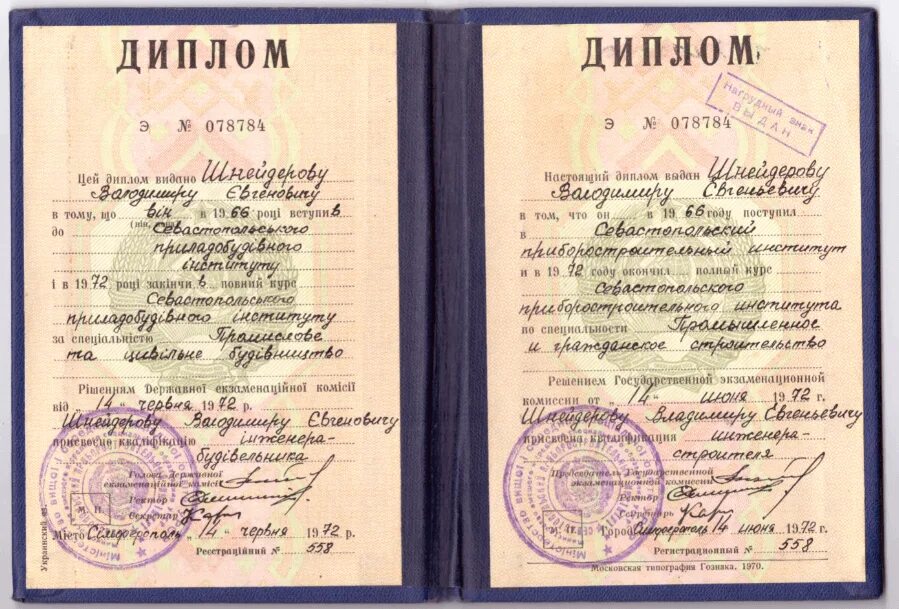 ДИПЛОМ
Э № 078784
Цей диплом видано Шнейдерову
Володимиру Євгеновичу
в тому, що він в 1966 році вступив
(він,
до Севастопольського
приладобудівного
інституту
і в 1972 році закінчив повний курс
Севастопольського
приладобудівного інституту
за спеціальністю Промислове
та цивільне будівництво
Рішенням Державної екзаменаційної комісії
від „14“ червня 1972 р.
Шнейдерову Володимиру Євгеновичу
присвоєно кваліфікацію інженера-
будівельника
Голова Державної
екзаменаційної комісії
Ректор
Секретар
М. П.
Місто Сімферополь „14“ червня 1972 р.
Реєстраційний № 558
Украинский яз.
ДИПЛОМ
Нагрудный знак
ВЫДАН
Э № 078784
Настоящий диплом выдан Шнейдерову
Володимиру Евгеньевичу
в том, что он в 1966 году поступил
в Севастопольский
приборостроительный институт
и в 1972 году окончил полный курс
Севастопольского
приборостроительного института
по специальности Промышленное
и гражданское строительство
Решением Государственной экзаменационной
комиссии от „14“ июня 1972 г.
Шнейдерову Владимиру Евгеньевичу
присвоена квалификация инженера-
строителя
Председатель Государственной
экзаменационной комиссии
Ректор
Секретарь
Город Симферополь 14 июня 1972 г.
Регистрационный № 558
Московская типография Гознака. 1970.